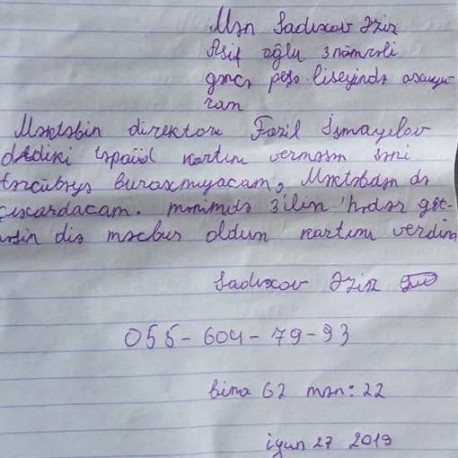 Mən Sadıxov Əziz
Asif oğlu 3 nömrəli
gəncə peşə liseyində oxuyu-
ram
Məktəbin direktoru Fazil İsmayılov
dedi ki kartını verməsən səni
təcrübəyə buraxmıyacam, Məktəbdən də
çıxardacam. mənimdə ilim hədər get-
məsin diə məcbur oldum kartımı verdim
Sadıxov Əziz
055-604-79-93
bina 62 mən: 22
iyun 27 2019